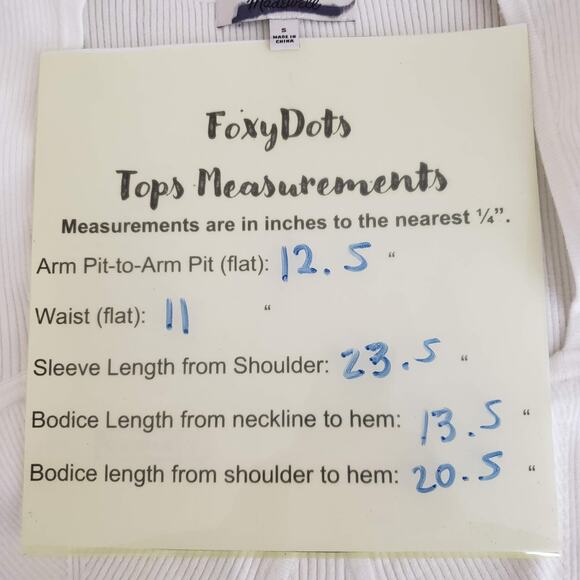 Madewell
S
MADE IN
CHINA
FoxyDots
Tops Measurements
Measurements are in inches to the nearest ¼”.
Arm Pit-to-Arm Pit (flat): 12.5 “
Waist (flat): 11 “
Sleeve Length from Shoulder: 23.5 “
Bodice Length from neckline to hem: 13.5 “
Bodice length from shoulder to hem: 20.5 “